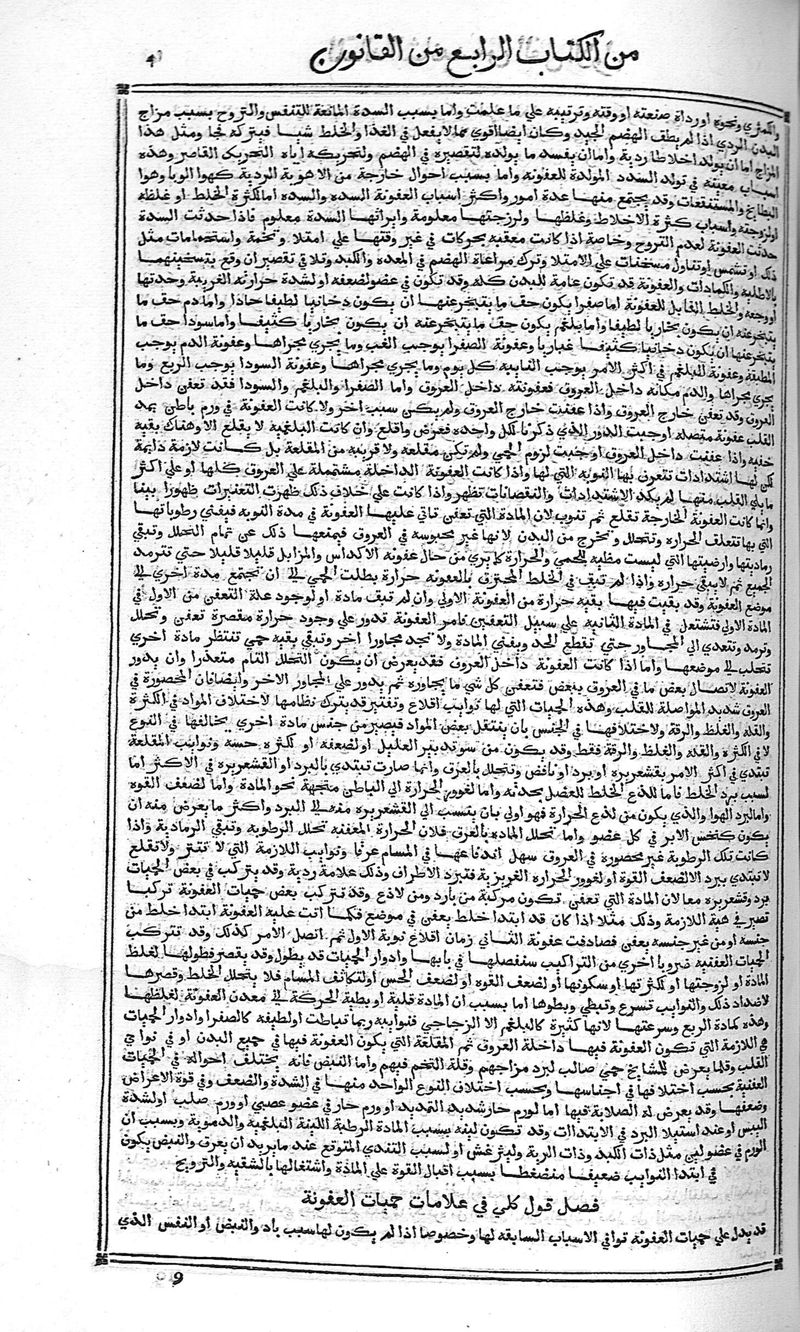 من الكتاب الرابع من القانون
والكمثري ونحوه اورداة صنعته او وقته وترتيبه علي ما علمت واما بسبب السدة المانعة للتنفس والتروح بسبب مزاج
البدن الردي اذا لم يطف الهضم الجيد وكان ايضا اقوي مما لا يفعل في الغذا والخلط شيا فيتركه فجا ومثل هذا
المزاج اما ان يولد اخلاطا ردية واما ان يفسد ما يولده لتقصيره في الهضم ولتحريكه اياه التحريك القاصر وهذه
اسباب معينة في تولد السدد المولدة للعفونة واما بسبب احوال خارجة من الاهوية الردية كهوا الوبا وهوا
البطايح والمستنقعات وقد يجتمع منها عدة امور واكثر اسباب العفونة السده والسده اما لكثرة الخلط او غلظه
او لزوجته واسباب كثرة الاخلاط وغلظها ولزوجتها معلومة وايراثها السدة معلوم فاذا حدثت السدة
حدثت العفونة لعدم التروح وخاصة اذا كانت معقبه بحركات في غير وقتها علي امتلا وتخمة واستحمامات مثل
ذلك او تشمس او تناول مسخنات علي الامتلا وترك مراعاة الهضم في المعده والكبد وتلافي تقصير ان وقع بتسخينهما
بالاطلية والكمادات والعفونة قد تكون عامة للبدن كله وقد تكون في عضو لضعفه او لشدة حرارته الغريبة وحدتها
او وجعه والخلط القابل للعفونة اما صفرا يكون حق ما يتبخر عنها ان يكون دخانيا لطيفا حادا واما دم حق ما
يتبخر عنه ان يكون بخاريا لطيفا واما بلغم يكون حق ما يتبخر عنه ان يكون بخاريا كثيفا واما سودا حق ما
يتبخر عنها ان يكون دخانيا كثيفا غباريا وعفونة الصفرا يوجب الغب وما يجري مجراها وعفونة الدم يوجب
المطبقة وعفونة البلغم في اكثر الامر يوجب النايبة كل يوم وما يجري مجراها وعفونة السودا يوجب الربع وما
يجري مجراها والدم مكانه داخل العروق فعفونته داخل العروق واما الصفرا والبلغم والسودا فقد تعفن داخل
العروق وقد تعفن خارج العروق واذا عفنت خارج العروق ولم يكن سبب اخر ولا كانت العفونة في ورم باطن يمد
القلب عفونة متصله اوجبت الدور الذي ذكرنا لكل واحده فعرض واقلع وان كانت البلغمية لا يقلع الا وهناك بقيه
خفيه واذا عفنت داخل العروق اوجبت لزوم الحمي ولم تكن مقلعه ولا قريبه من المقلعة بل كانت لازمة دايمة
لكن لها اشتدادات تتعرف بها النوبه التي لها واذا كانت العفونة الداخلة مشتملة علي العروق كلها او علي اكثر
ما يلي القلب منها لم يكد الاشتدادات والنقصانات تظهر واذا كانت علي خلاف ذلك ظهرت التغيرات ظهورا بينا
وانما كانت العفونة الخارجة تقلع ثم تنوب لان المادة التي تعفن تاتي عليها العفونة في مدة النوبه فيفني رطوباتها
التي بها تتعلف الحراره وتتحلل وتخرج من البدن لانها غير محبوسه في العروق فيمنعها ذلك عن تمام التحلل وتبقي
رماديتها وارضيتها التي ليست مظنة للحمي والحرارة كما يري من حال عفونه الاكداس والمزابل قليلا قليلا حتي تترمد
الجميع ثم لا يبقي حراره واذا لم تبق في الخلط المحترق بالعفونة حرارة بطلت الحمي الي ان تجتمع مدة اخري الي
موضع العفونة وقد بقيت فيها بقيه حرارة من العفونة الاولي وان لم تبق مادة او لوجود علة التعفن من الاول في
المادة الاولي فتشتعل في المادة الثانيه علي سبيل التعفين فامر العفونة تدور علي وجود حرارة مقصرة تعفن وتحلل
وترمد وتتعدي الي المجاور حتي تقطع الحد ويفني المادة ولا تجد مجاورا اخر وتبقي بقيه حمي تنتظر مادة اخري
تتحلب الي موضعها واما اذا كانت العفونة داخل العروق فقد يعرض ان يكون التحلل التام متعذرا وان يدور
العفونة لاتصال بعض ما في العروق ببعض فتعفن كل شي ما يجاوره ثم يدور علي المجاور الاخر وايضا فان المحصورة في
العروق شديد المواصلة للقلب وهذه الحميات التي لها نوايب اقلاع وتفتير قد يترك نظامها لاختلاف المواد في الكثرة
والقله والغلظ والرقة ولاختلافها في الجنس بان ينتقل بعض المواد فيصير من جنس مادة اخري يخالفها في النوع
لا في الكثره والقله والغلظ والرقة فقط وقد يكون من سو تدبير العليل او لضعفه او لكثره حسه ونوايب المقلعة
تبتدي في اكثر الامر بقشعريره او برد او نافض وتتحلل بالعرق وانما صارت تبتدي بالبرد او القشعريره في الاكثر اما
لسبب برد الخلط واما للذع الخلط للعضل بحدته واما لغوور الحرارة الي الباطن متجهة نحو المادة واما لضعف القوه
واما لبرد الهوا والذي يكون من لذع الحرارة فهو اولي بان ينتسب الي القشعريره منه الي البرد واكثر ما يعرض منه ان
يكون كنخس الابر في كل عضو واما تحلل الماده بالعرق فلان الحرارة المعفنه تحلل الرطوبه وتبقي الرمادية واذا
كانت تلك الرطوبة غير محصورة في العروق سهل اندفاعها في المسام عرقا ونوايب اللازمة التي لا تفتر ولا تقلع
لا تبتدي ببرد الا لضعف القوة او لغوور الحراره الغريزية فتبرد الاطراف وذلك علامة ردية وقد يتركب في بعض الحميات
برد وقشعريره معا لان المادة التي تعفن تكون مركبة من بارد ومن لاذع وقد تتركب بعض حميات العفونة تركيبا
تصير في هية اللازمة وذلك مثلا اذا كان قد ابتدا خلط يعفن في موضع فكما اتت عليه العفونة ابتدا خلط من
جنسه او من غير جنسه يعفن فصادفت عفونة الثاني زمان اقلاع نوبة الاول ثم اتصل الامر كذلك وقد تتركب
الحميات العفنيه ضروبا اخري من التراكيب سنفصلها في بابها وادوار الحميات قد يطول وقد يقصر فطولها لغلظ
المادة او لزوجتها او كثرتها او سكونها او لضعف القوه او لضعف الحس او لتكاثف المسام فلا يتحلل الخلط وقصرها
لاضداد ذلك والنوايب تسرع وتبطي وبطوها اما بسبب ان المادة قلية او بطية الحركة الي معدن العفونة لغلظها
وهذه كمادة الربع وسرعتها لانها كثيرة كالبلغم الا الزجاجي فنوايبه ربما تباطت او لطيفه كالصفرا وادوار الحميات
هي اللازمة التي تكون العفونة فيها داخلة العروق ثم المقلعة التي يكون العفونة فيها في جميع البدن او في نواحي
القلب وقلما يعرض للمشايخ حمي صالب لبرد مزاجهم وقلة التخم فيهم واما النبض فانه يختلف احواله في الحميات
العفنية بحسب اختلافها في اجناسها وبحسب اختلاف النوع الواحد منها في الشدة والضعف وفي قوة الاعراض
وضعفها وقد يعرض له الصلابة فيها اما لورم حار شديد التمديد او ورم حار في عضو عصبي او ورم صلب او لشدة
اليبس او عند استيلا البرد في الابتداات وقد تكون لينه بسبب المادة الرطبة اللينة البلغمية والدموية وبسبب ان
الورم في عضو لين مثل ذات الكبد وذات الرية وليثرغش او لسبب التندي المتوقع عند ما يريد ان يعرق والنبض يكون
في ابتدا النوايب ضعيفا منضغطا بسبب اقبال القوة علي المادة واشتغالها بالتنقيه والترويح
فصل قول كلي في علامات حميات العفونة
قد يدل علي حميات العفونه توافي الاسباب السابقه لها وخصوصا اذا لم يكون لها سبب باد والنبض او النفس الذي
9